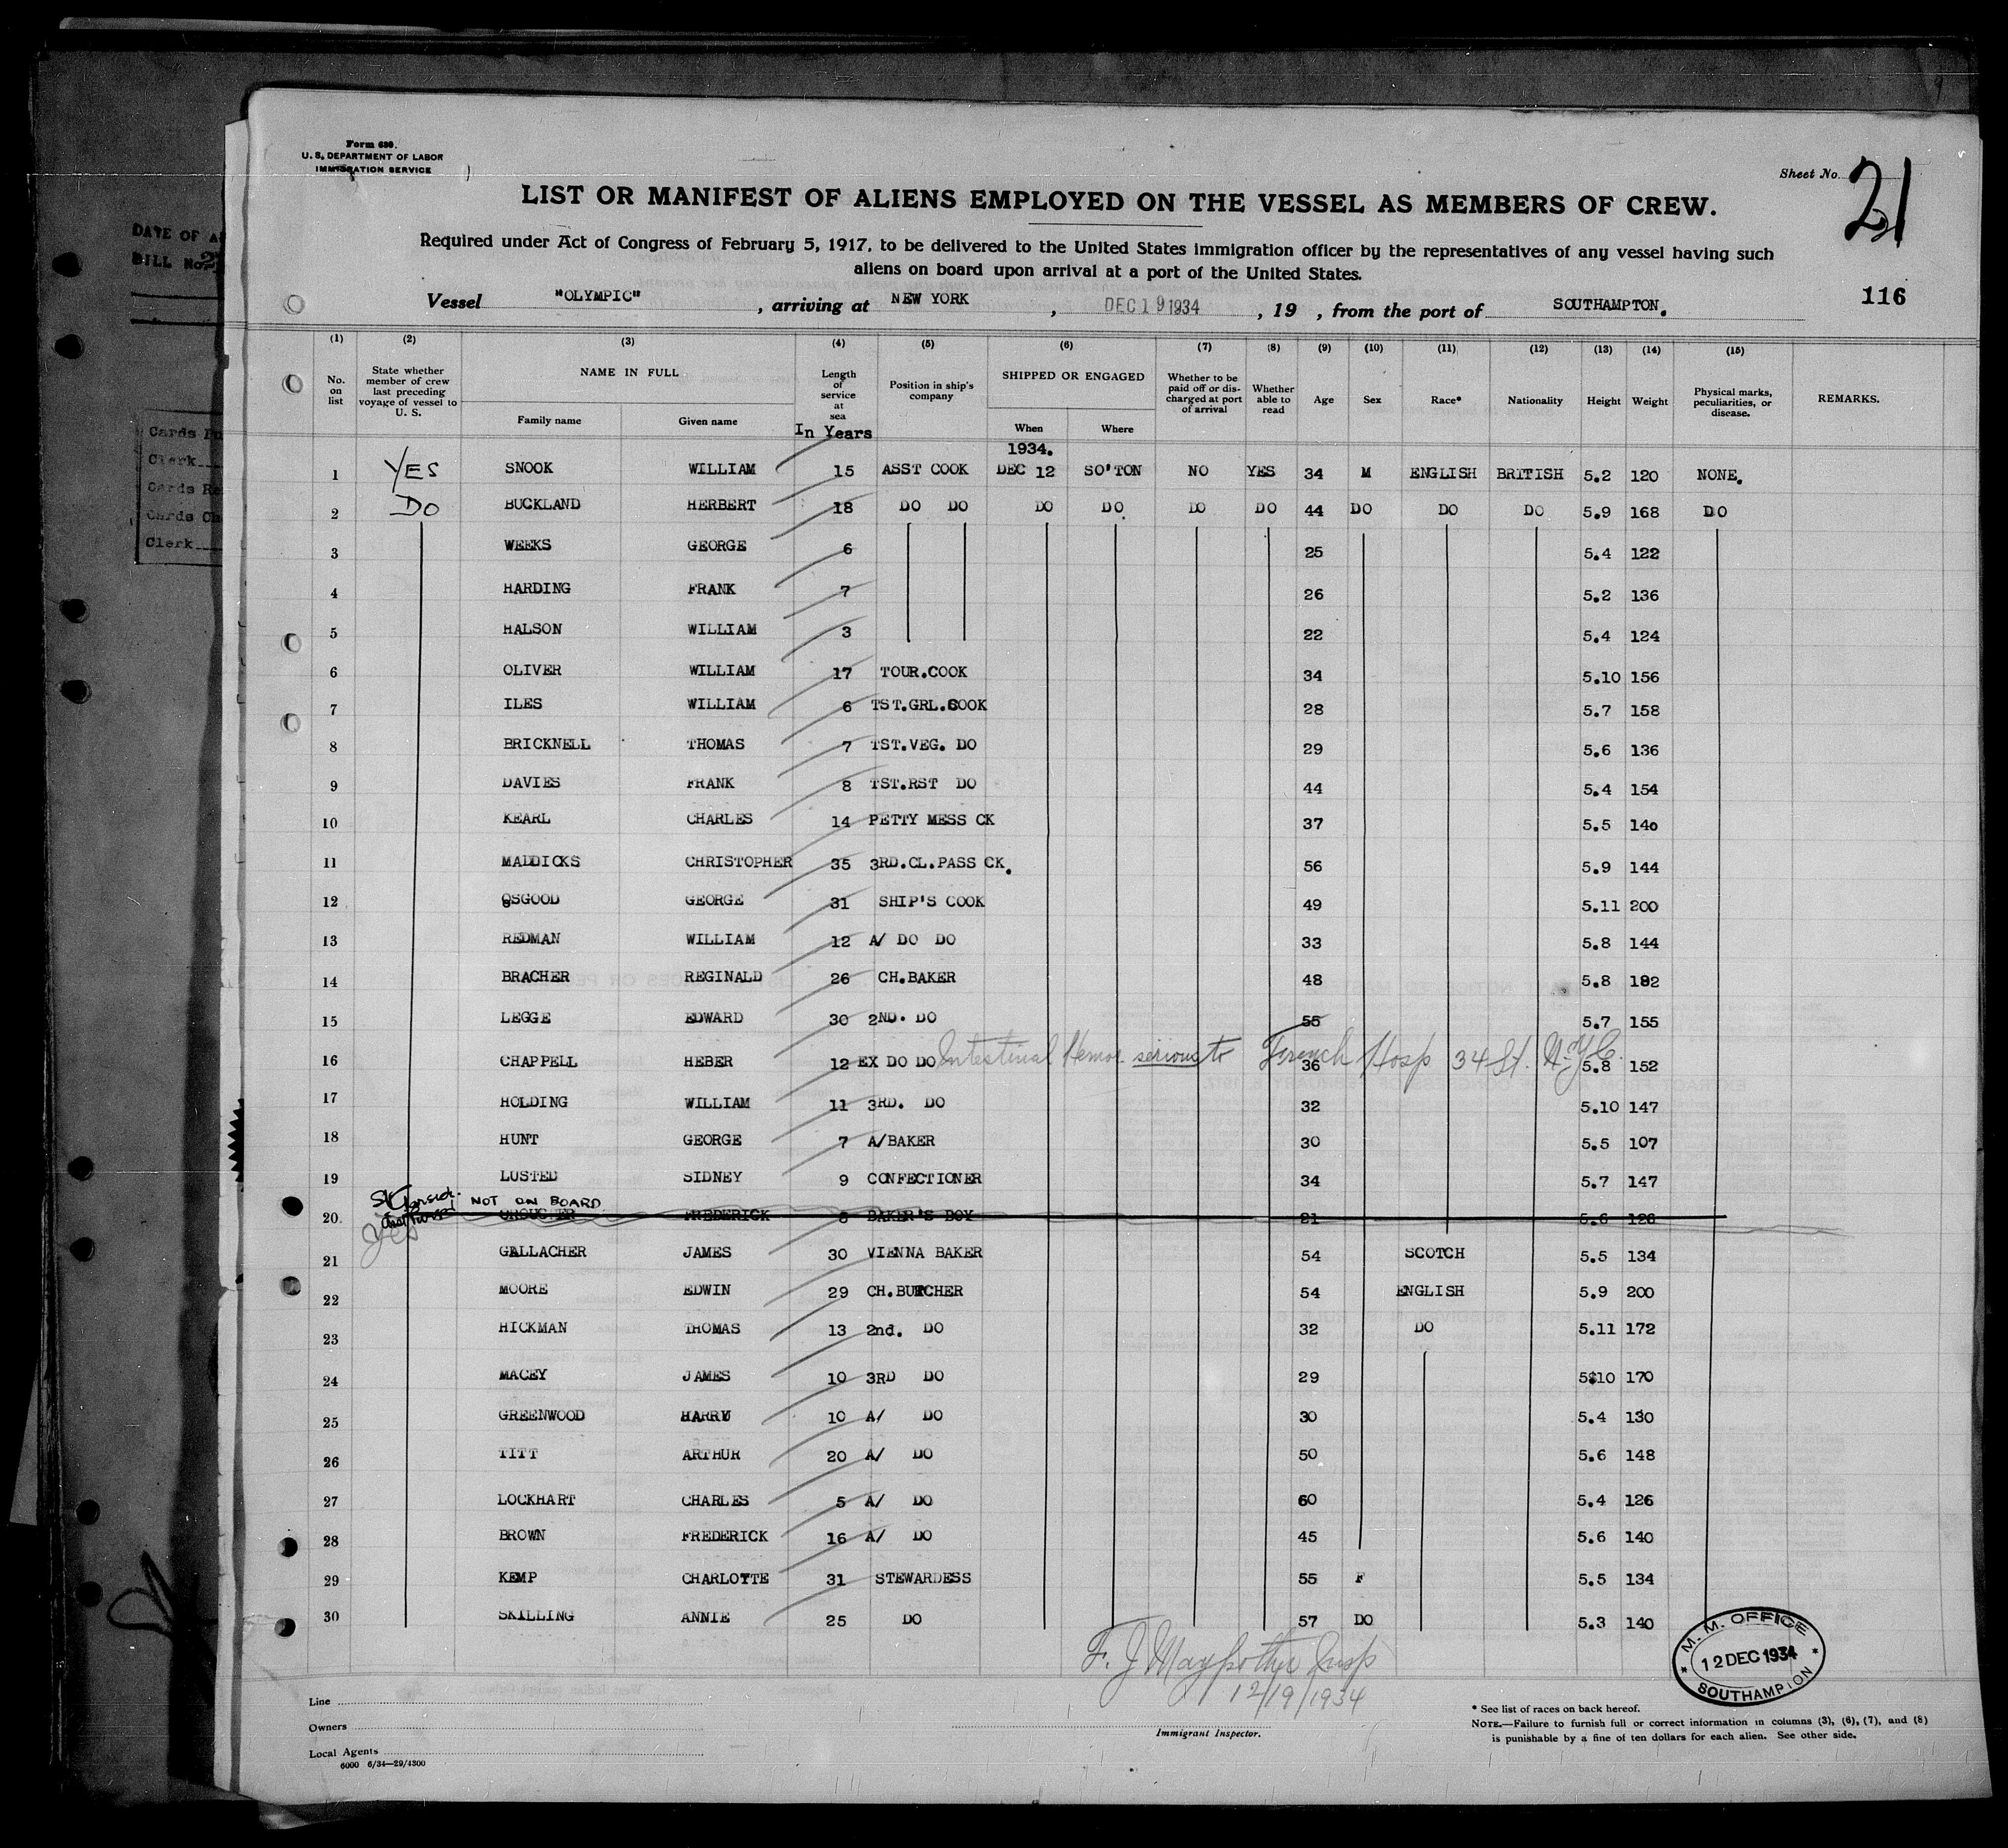 Form 680.
U. S. DEPARTMENT OF LABOR
IMMIGRATION SERVICE
Sheet No. 21
LIST OR MANIFEST OF ALIENS EMPLOYED ON THE VESSEL AS MEMBERS OF CREW.
Required under Act of Congress of February 5, 1917, to be delivered to the United States immigration officer by the representatives of any vessel having such
aliens on board upon arrival at a port of the United States.
116
Vessel "OLYMPIC", arriving at NEW YORK, DEC 19 1934, 19 , from the port of SOUTHAMPTON.
DATE OF
BILL No.
Cards
Clerk
Cards
Cards
Clerk
(1) (2) (3) (4) (5) (6) (7) (8) (9) (10) (11) (12) (13) (14) (15)
No. on list
State whether member of crew last preceding voyage of vessel to U. S.
NAME IN FULL
Family name
Given name
Length of service at sea
In Years
Position in ship's company
SHIPPED OR ENGAGED
When
1934.
Where
Whether to be paid off or discharged at port of arrival
Whether able to read
Age
Sex
Race*
Nationality
Height
Weight
Physical marks, peculiarities, or disease.
REMARKS.
1 YES SNOOK WILLIAM 15 ASST COOK DEC 12 SO'TON NO YES 34 M ENGLISH BRITISH 5.2 120 NONE.
2 DO BUCKLAND HERBERT 18 DO DO DO DO. DO DO 44 DO DO DO 5.9 168 DO
3 WEEKS GEORGE 6 25 5.4 122
4 HARDING FRANK 7 26 5.2 136
5 HALSON WILLIAM 3 22 5.4 124
6 OLIVER WILLIAM 17 TOUR.COOK 34 5.10 156
7 ILES WILLIAM 6 TST.GRL.COOK 28 5.7 158
8 BRICKNELL THOMAS 7 TST.VEG. DO 29 5.6 136
9 DAVIES FRANK 8 TST.RST DO 44 5.4 154
10 KEARL CHARLES 14 PETTY MESS CK 37 5.5 140
11 MADDICKS CHRISTOPHER 35 3RD.CL.PASS CK. 56 5.9 144
12 OSGOOD GEORGE 31 SHIP'S COOK 49 5.11 200
13 REDMAN WILLIAM 12 A/ DO DO 33 5.8 144
14 BRACHER REGINALD 26 CH.BAKER 48 5.8 182
15 LEGGE EDWARD 30 2ND. DO 55 5.7 155
Intestinal Hemor. serious to French Hosp 34 St. N.Y.C.
16 CHAPPELL HEBER 12 EX DO DO 36 5.8 152
17 HOLDING WILLIAM 11 3RD. DO 32 5.10 147
18 HUNT GEORGE 7 A/BAKER 30 5.5 107
19 LUSTED SIDNEY 9 CONFECTIONER 34 5.7 147
NOT ON BOARD
20 CROUCHER FREDERICK 6 BAKER'S BOY 21 5.6 126
Yes
21 GALLACHER JAMES 30 VIENNA BAKER 54 SCOTCH 5.5 134
22 MOORE EDWIN 29 CH.BUTCHER 54 ENGLISH 5.9 200
23 HICKMAN THOMAS 13 2nd. DO 32 DO 5.11 172
24 MACEY JAMES 10 3RD DO 29 5$10 170
25 GREENWOOD HARRY 10 A/ DO 30 5.4 130
26 TITT ARTHUR 20 A/ DO 50 5.6 148
27 LOCKHART CHARLES 5 A/ DO 60 5.4 126
28 BROWN FREDERICK 16 A/ DO 45 5.6 140
29 KEMP CHARLOTTE 31 STEWARDESS 55 F 5.5 134
30 SKILLING ANNIE 25 DO 57 DO 5.3 140
M. M. OFFICE
12 DEC 1934
SOUTHAMPTON
F. J. Maypother Insp
12/19/1934
Immigrant Inspector.
Line
Owners
Local Agents
6000 6/34—29/4300
* See list of races on back hereof.
NOTE.—Failure to furnish full or correct information in columns (3), (6), (7), and (8)
is punishable by a fine of ten dollars for each alien. See other side.